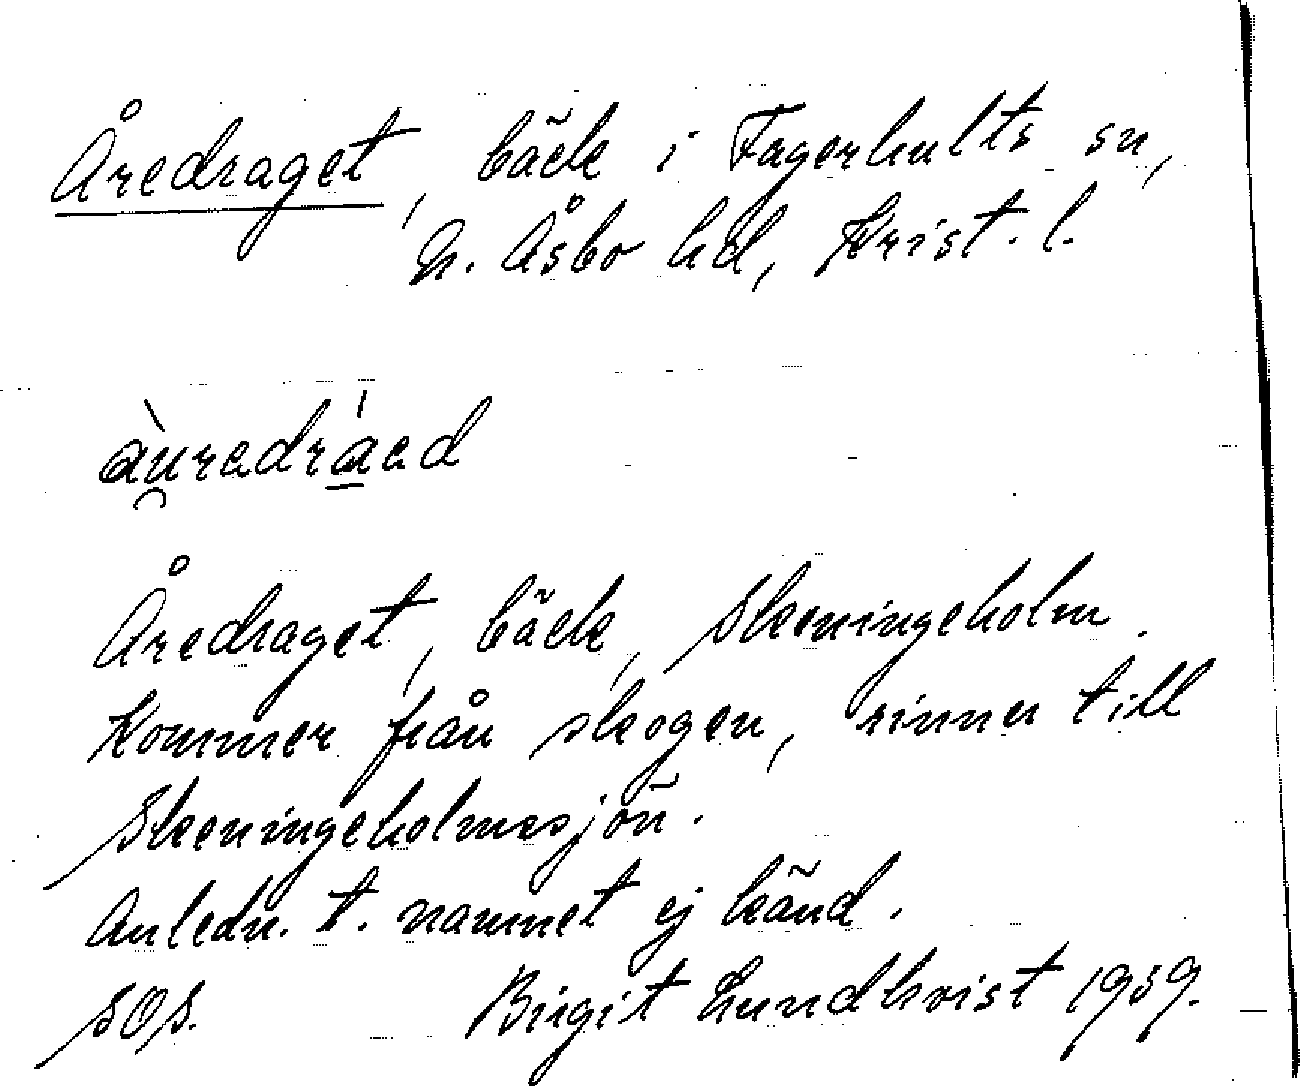 Åredraget, bäck i Fagerhults sn,
N. Åsbo hd, Krist. l.
àu̯redrá̲ad
Åredraget, bäck, Skeeningeholm.
Kommer från skogen, rinner till
Skeeningeholmssjön.
Anledn. t. namnet ej känd.
SOS. Birgit Lundkvist 1959.